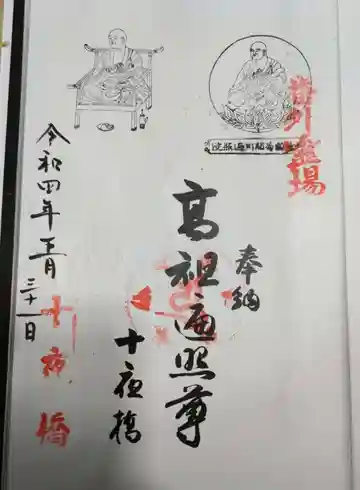 番外霊場
奉納
高祖遍照尊
十夜橋
十夜橋
令和四年五月三十一日